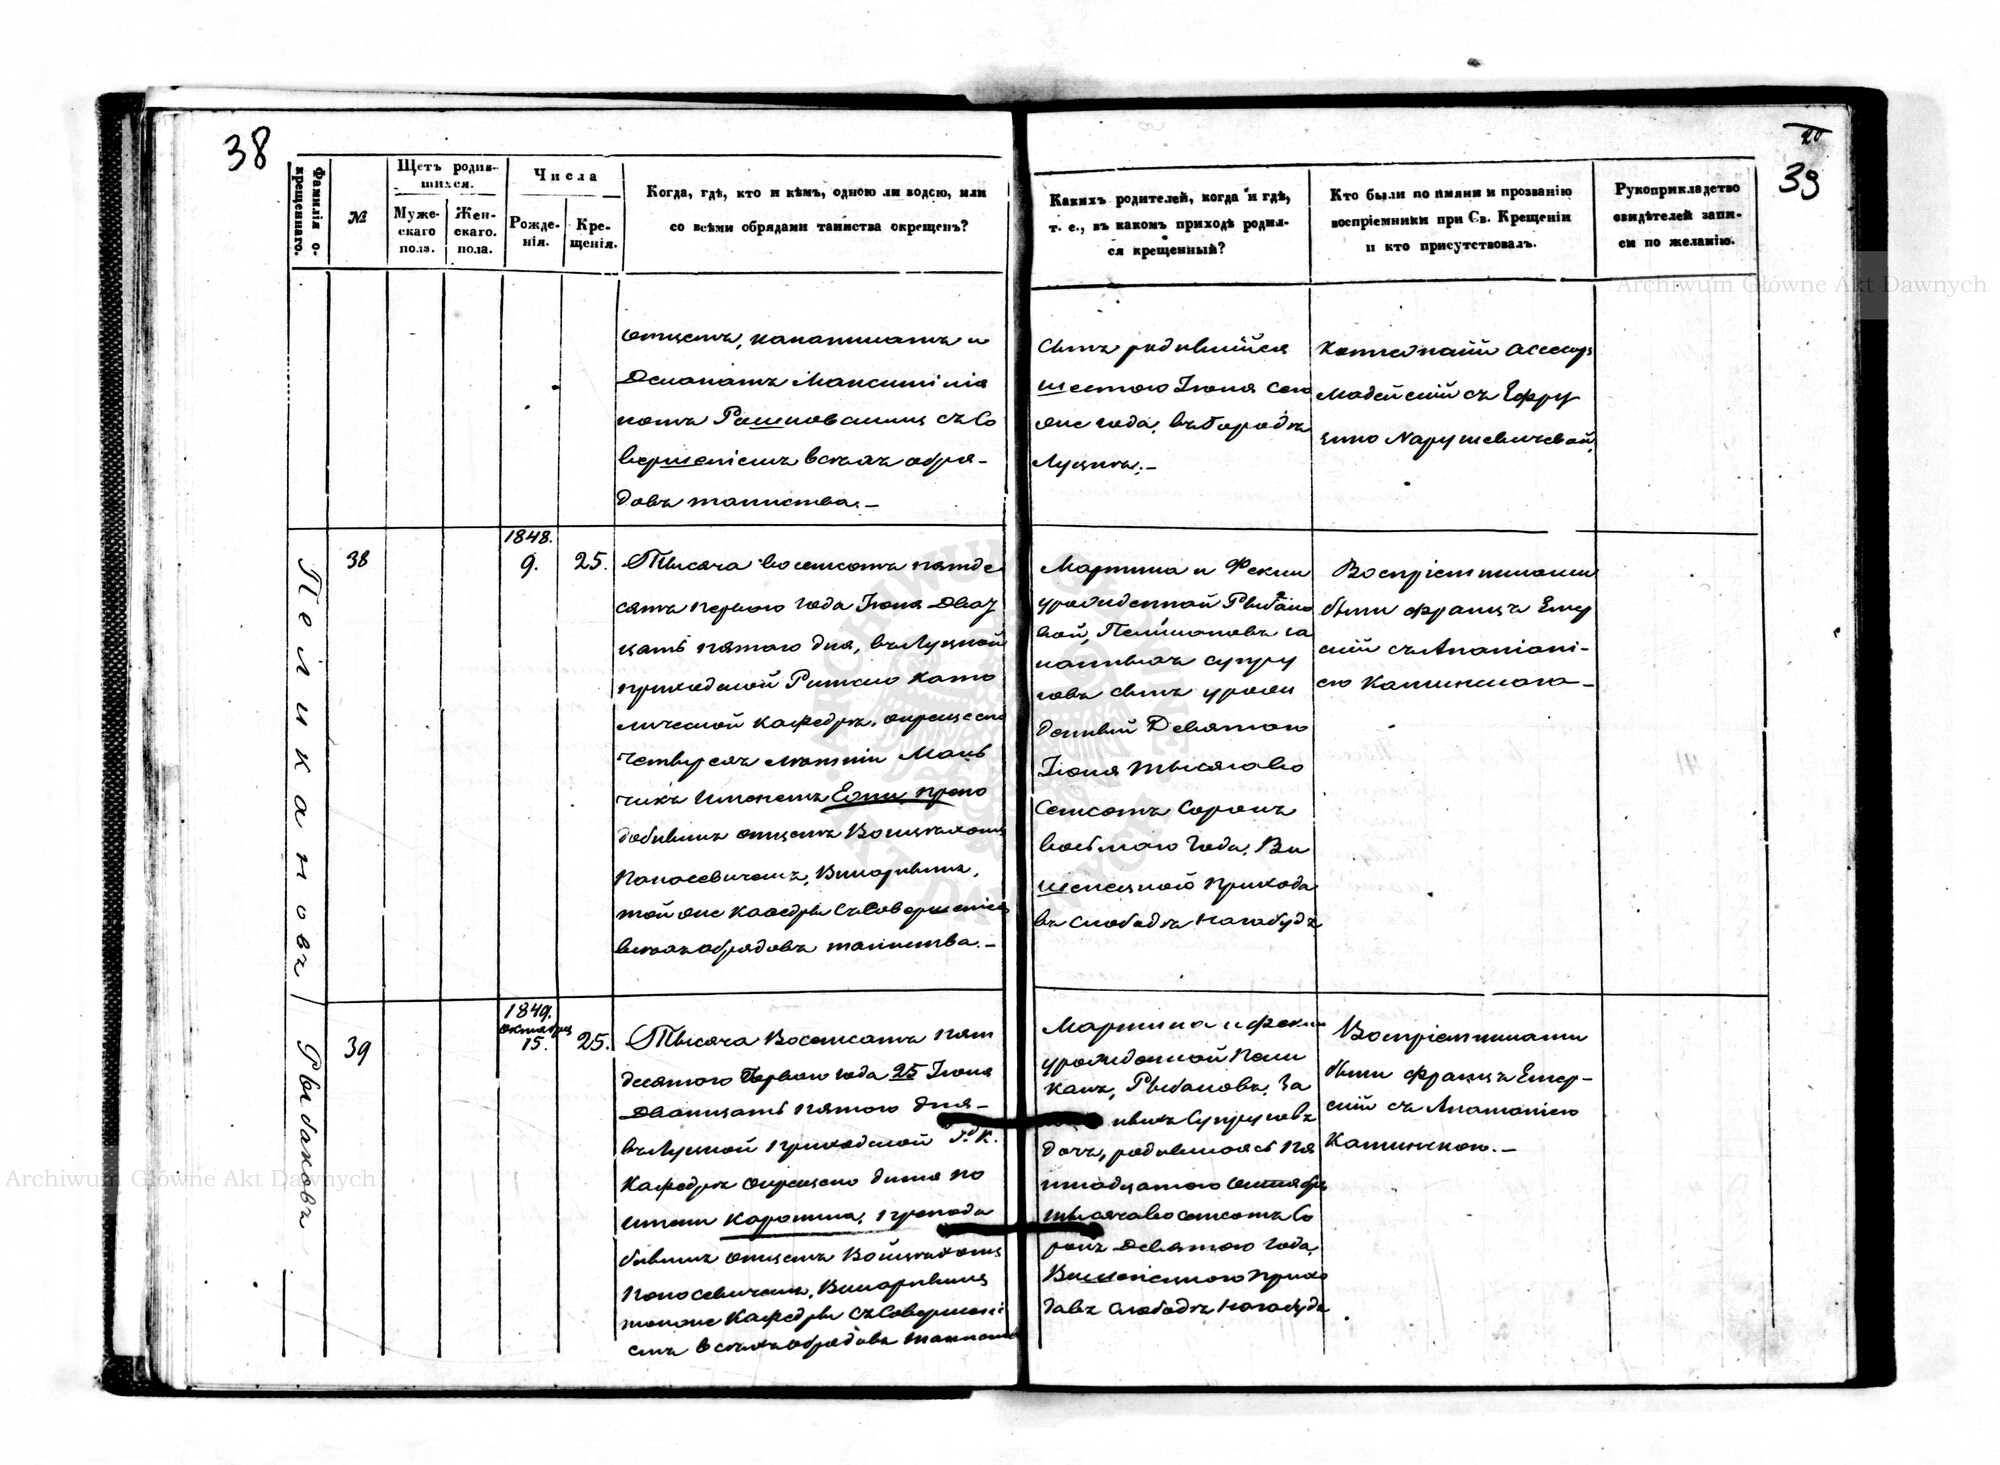 38
Фамилія о-
крещеннаго.
№
Щетъ родив-
шихся.
Муже-
скаго
пола.
Жен-
скаго.
пола.
Числа
Рожде-
нія.
Кре-
щенія.
Когда, гдѣ, кто и кѣмъ, одною ли водою, или
со всѣми обрядами таинства окрещенъ?
отцемъ, капитаномъ и
Деканатъ Максимилія
номъ
съ Со
вершеніемъ всѣхъ обря-
довъ таинства.–
Пеликановъ
38
1848.
9.
25.
Тысяча восемсотъ пятде
сятъ перваго года Іюня двад
цать пятаго дня, въ Луцкой
приходской Римско Като
лической Кафедрѣ, окрещенъ
Маль
чикъ именемъ
отцемъ Войцѣхомъ
Викарнымъ,
той же Кафедры съ Совершеніемъ
всѣхъ обрядовъ таинства.–
Рыбаковъ
39
1849.
октября
15.
25.
Тысяча Восемсотъ пят
десятого Перваго года 25 Іюня
Двадцать пятаго дня–
въ Луцкой приходской Р. К.
Кафедрѣ окрещено дитя по
имени Каролина, препода
бнымъ отцемъ Войцѣхомъ
Викарнымъ
тойже Кафедры съ Совершені
емъ всѣхъ обрядовъ таинства
20
39
Какихъ родителей, когда и гдѣ,
т. е., въ какомъ приходѣ родил-
ся крещенный?
Кто были по имяни и прозванію
воспріемники при Св. Крещеніи
и кто присутствовалъ.
Рукоприкладство
свидѣтелей запи-
си по желанію.
Сынъ родившійся
шестаго Іюня сего
же года, въ Городѣ
Луцкѣ.–
Коллежскій Ассесоръ
съ Ефру
зиною Нарушевичевой.
Мартина и Феклы
урожденной Рыбако
вой, Пеликановъ за
конныхъ супру
говъ сынъ урож
денный Девятого
Іюня тысяча во
семсотъ Сорокъ
восьмаго Года, Ви
шенецкого прихода
въ Слободѣ
Воспріемниками
были Францъ
скій съ Антоніею
Каминскою–
Мартина и Феклы
урожденной Пели
канъ, Рыбаковъ, За
ныхъ Супруговъ
дочь, родившаяся пя
тнадцатого октября
тысяча восемсотъ Со
рокъ девятого года,
Вишенецкого Прихо
да въ Слободѣ
Воспріемниками
были Францъ
скій съ Антоніею
Каминскою.–
Archiwum Główne Akt Dawnych
Archiwum Główne Akt Dawnych